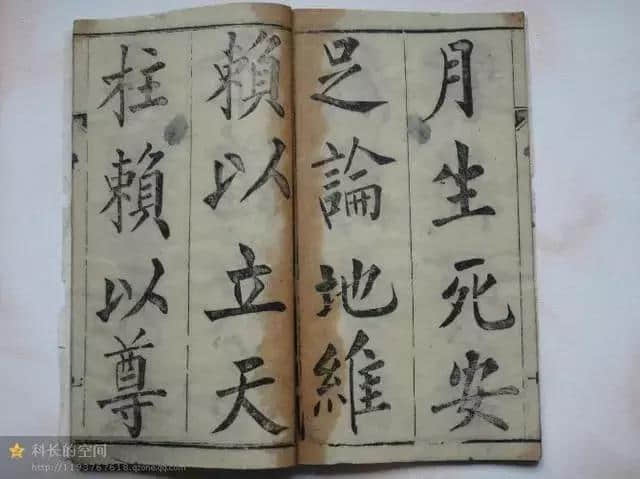 月生死安
足論地維
賴以立天
柱賴以尊
科长的空间
http://1193767618.qzone.qq.com